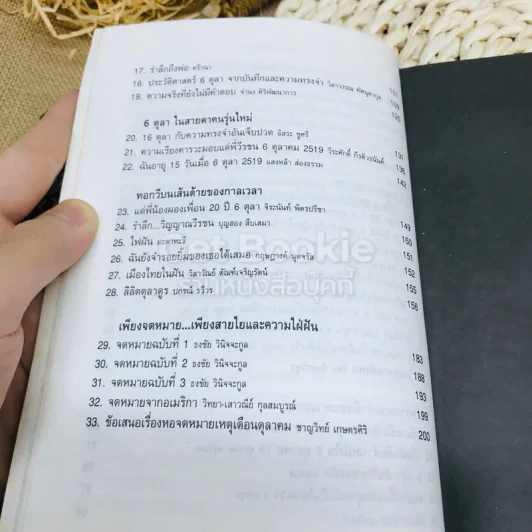 17. รำลึกถึงพ่อ ศริวนา
18. ประวัติศาสตร์ 6 ตุลา จากบันทึกและความทรงจำ วิลาวรรณ 101
19. ความจริงที่ยังไม่มีคำตอบ จำนง ศิริพัฒนาการ 109
120
6 ตุลา ในสายตาคนรุ่นใหม่
20. 16 ตุลา กับความทรงจำอันเจ็บปวด อิสระ ชูศรี 131
21. ความเรียงคารวะมอบแด่พี่วีรชน 6 ตุลาคม 2519 วีระศักดิ์ กีรติวรนันท์ 136
22. ฉันอายุ 15 วันเมื่อ 6 ตุลา 2519 แสงหล้า ส่องธรรม 142
ทอกวีบนเส้นด้ายของกาลเวลา
23. แด่พี่น้องผองเพื่อน 20 ปี 6 ตุลา จิระนันท์ พิตรปรีชา 149
24. รำลึก...วิญญาณวีรชน บุญสอง สืบเสมา 150
25. ไฟฝัน มะดาหะรี 151
26. ฉันยังจำรอยยิ้มของเธอได้เสมอ กฤษฎางค์ นุตจรัส 151
27. เมืองไทยในฝัน วิลาวัณย์ ตัณฑ์เจริญรัตน์ 152
28. ลิลิตตุลาดูร ปกรณ์ รวีวร 155
156
Get Bookie
ร้านหนังสือบุ๊คกี้
เพียงจดหมาย...เพียงสายใยและความใฝ่ฝัน
29. จดหมายฉบับที่ 1 ธงชัย วินิจจะกูล 183
30. จดหมายฉบับที่ 2 ธงชัย วินิจจะกูล 188
31. จดหมายฉบับที่ 3 ธงชัย วินิจจะกูล 193
32. จดหมายจากอเมริกา วิทยา-เสาวณีย์ กุลสมบูรณ์ 199
33. ข้อเสนอเรื่องหอจดหมายเหตุเดือนตุลาคม ชาญวิทย์ เกษตรศิริ 200